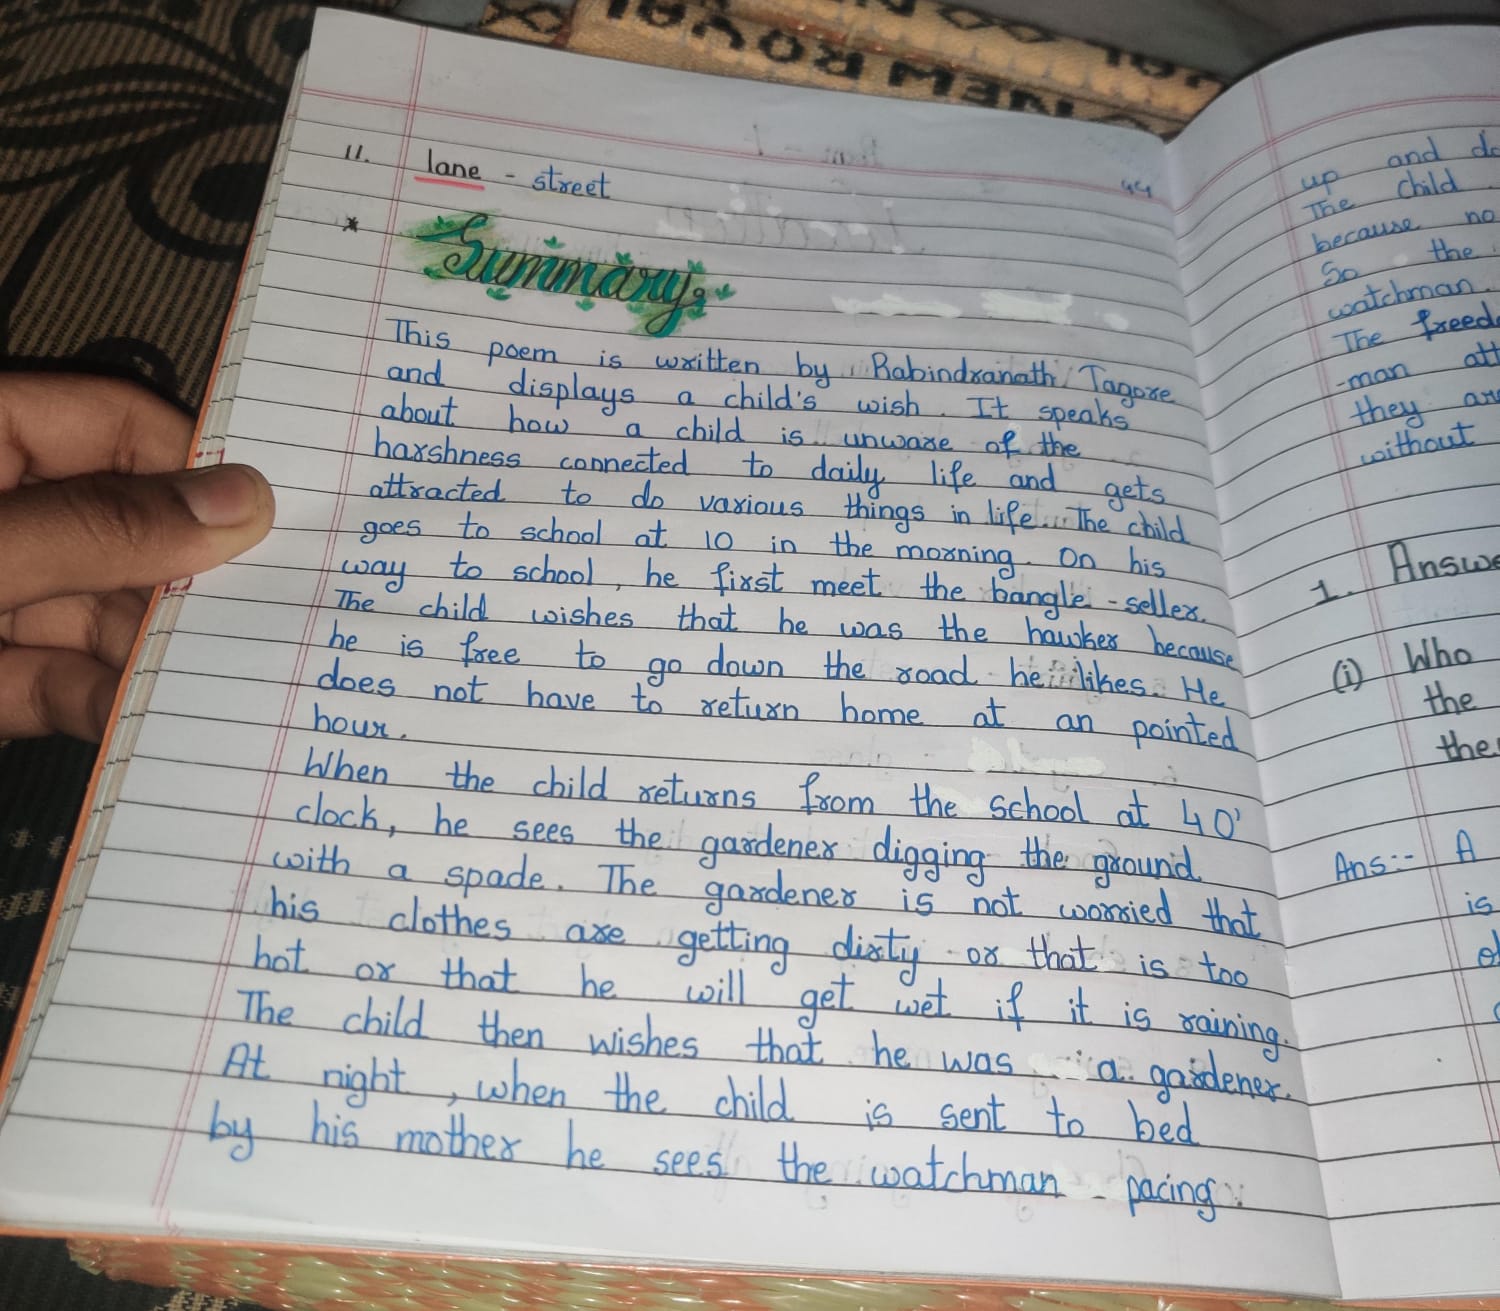 NEW ROYAL
11. lane - street
44
* Summary
This poem is written by Rabindranath Tagore
and displays a child's wish. It speaks
about how a child is unware of the
harshness connected to daily life and gets
attracted to do various things in life. The child
goes to school at 10 in the morning. On his
way to school, he first meet the bangle-seller.
The child wishes that he was the hawker because
he is free to go down the road he likes. He
does not have to return home at an pointed
hour.
When the child returns from the school at 4 0'
clock, he sees the gardener digging the ground
with a spade. The gardener is not worried that
his clothes are getting dirty or that is too
hot or that he will get wet if it is raining.
The child then wishes that he was a gardener.
At night, when the child is sent to bed
by his mother he sees the watchman pacing
up and do
The child
because no
So the
watchman.
The freed
-man att
they are
without
1. Answe
(i) Who
the
the
Ans:- A
is